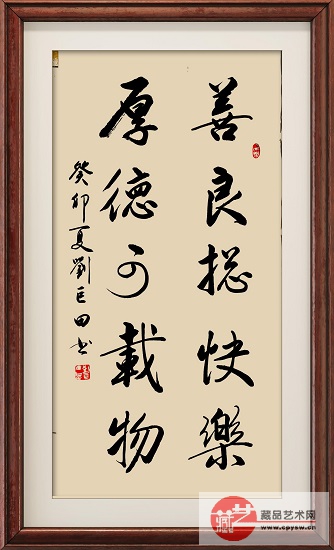 善良捴快樂
厚德可載物
癸卯夏劉巨田书
藏艺
藏品艺术网
www.cpysw.cn